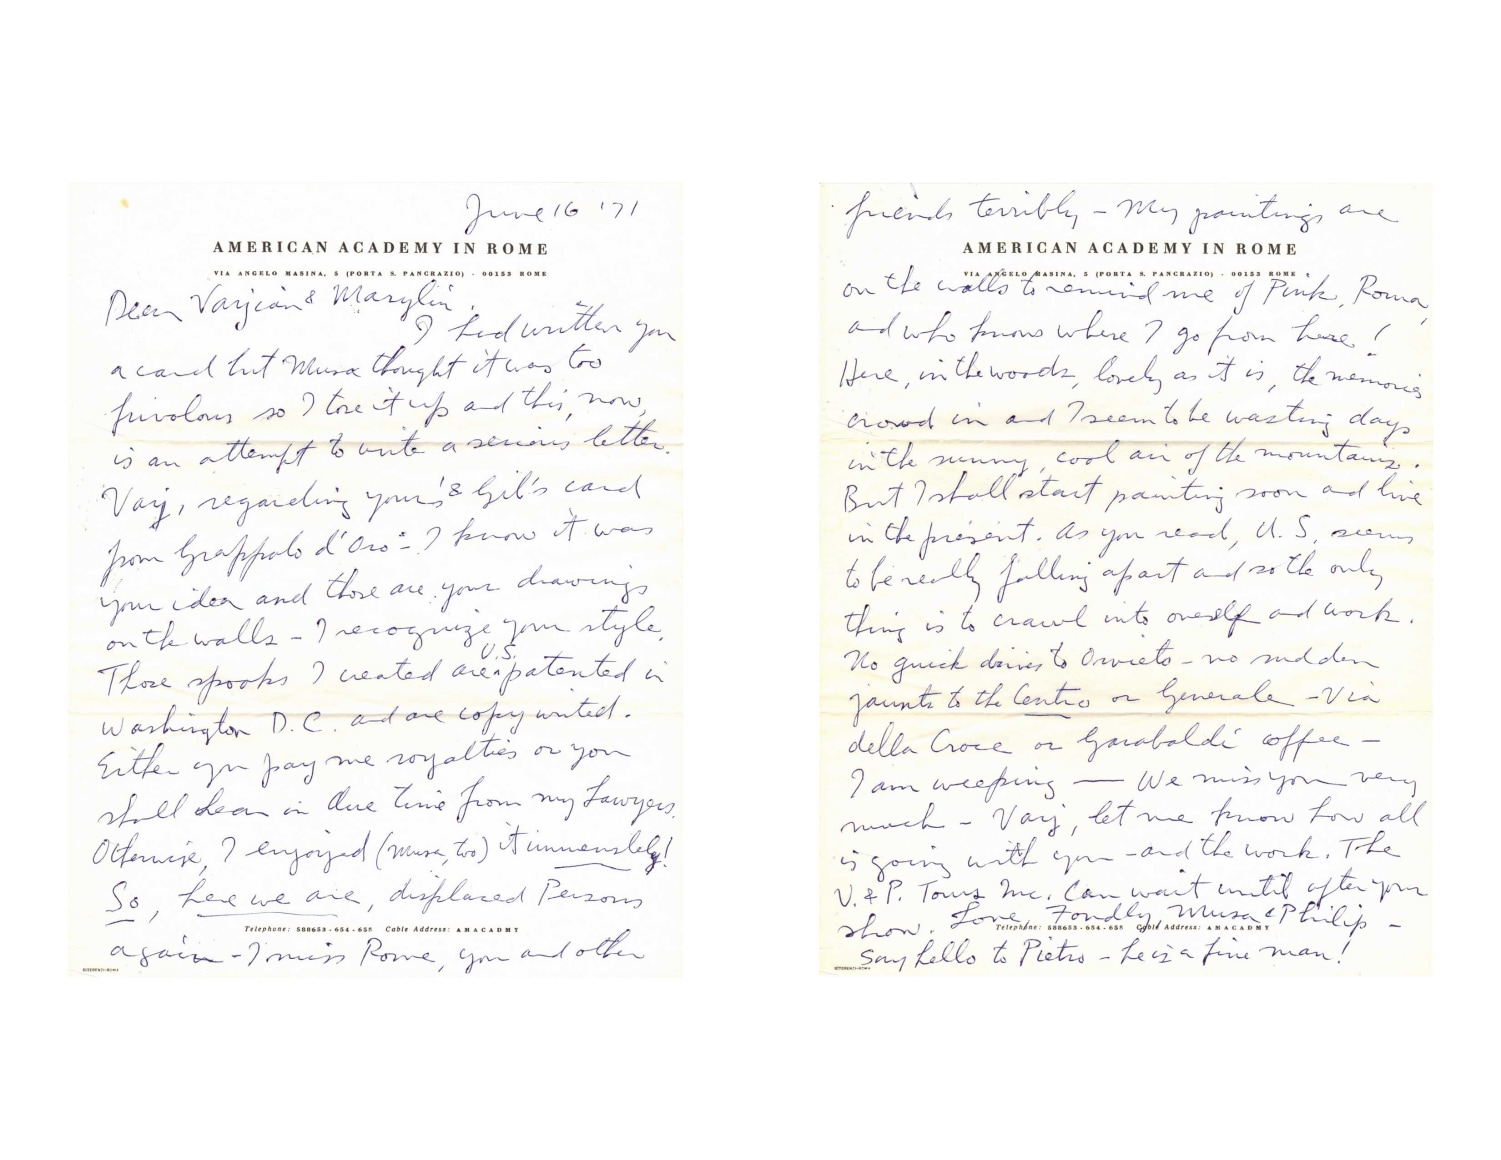 June 16 '71
AMERICAN ACADEMY IN ROME
VIA ANGELO MASINA, 5 (PORTA S. PANCRAZIO) · 00153 ROME
Dear Varjian & Marylin,
I had written you
a card but Musa thought it was too
frivolous so I tore it up and this, now,
is an attempt to write a serious letter.
Varj, regarding your's & Gil's card
from Grappolo d'Oro – I know it was
your idea and those are your drawings
on the walls – I recognize your style.
Those spooks I created are U.S. patented in
Washington D.C. and are copy writed.
Either you pay me royalties or you
shall hear in due time from my Lawyers.
Otherwise, I enjoyed (Musa, too) it immensley!
So, here we are, displaced Persons
Telephone: 588653 - 654 - 655 Cable Address: AMACADMY
again – I miss Rome, you and other
friends terribly – My paintings are
AMERICAN ACADEMY IN ROME
VIA ANGELO MASINA, 5 (PORTA S. PANCRAZIO) · 00153 ROME
on the walls to remind me of Pink, Roma,
and who knows where I go from here!
Here, in the woods, lovely as it is, the memories
crowd in and I seem to be wasting days
in the sunny, cool air of the mountains.
But I shall start painting soon and live
in the present. As you read, U.S. seems
to be really falling apart and so the only
thing is to crawl into oneself and work.
No quick drives to Orvieto – no sudden
jaunts to the Centro or Generale – Via
della Croce or Garabaldi coffee –
I am weeping — We miss you very
much – Varj, let me know how all
is going with you – and the work. The
V. & P. Tours Inc. Can wait until after your
show. Love, Fondly, Musa & Philip –
Telephone: 588653 - 654 - 655 Cable Address: AMACADMY
Say hello to Pietro – he is a fine man!